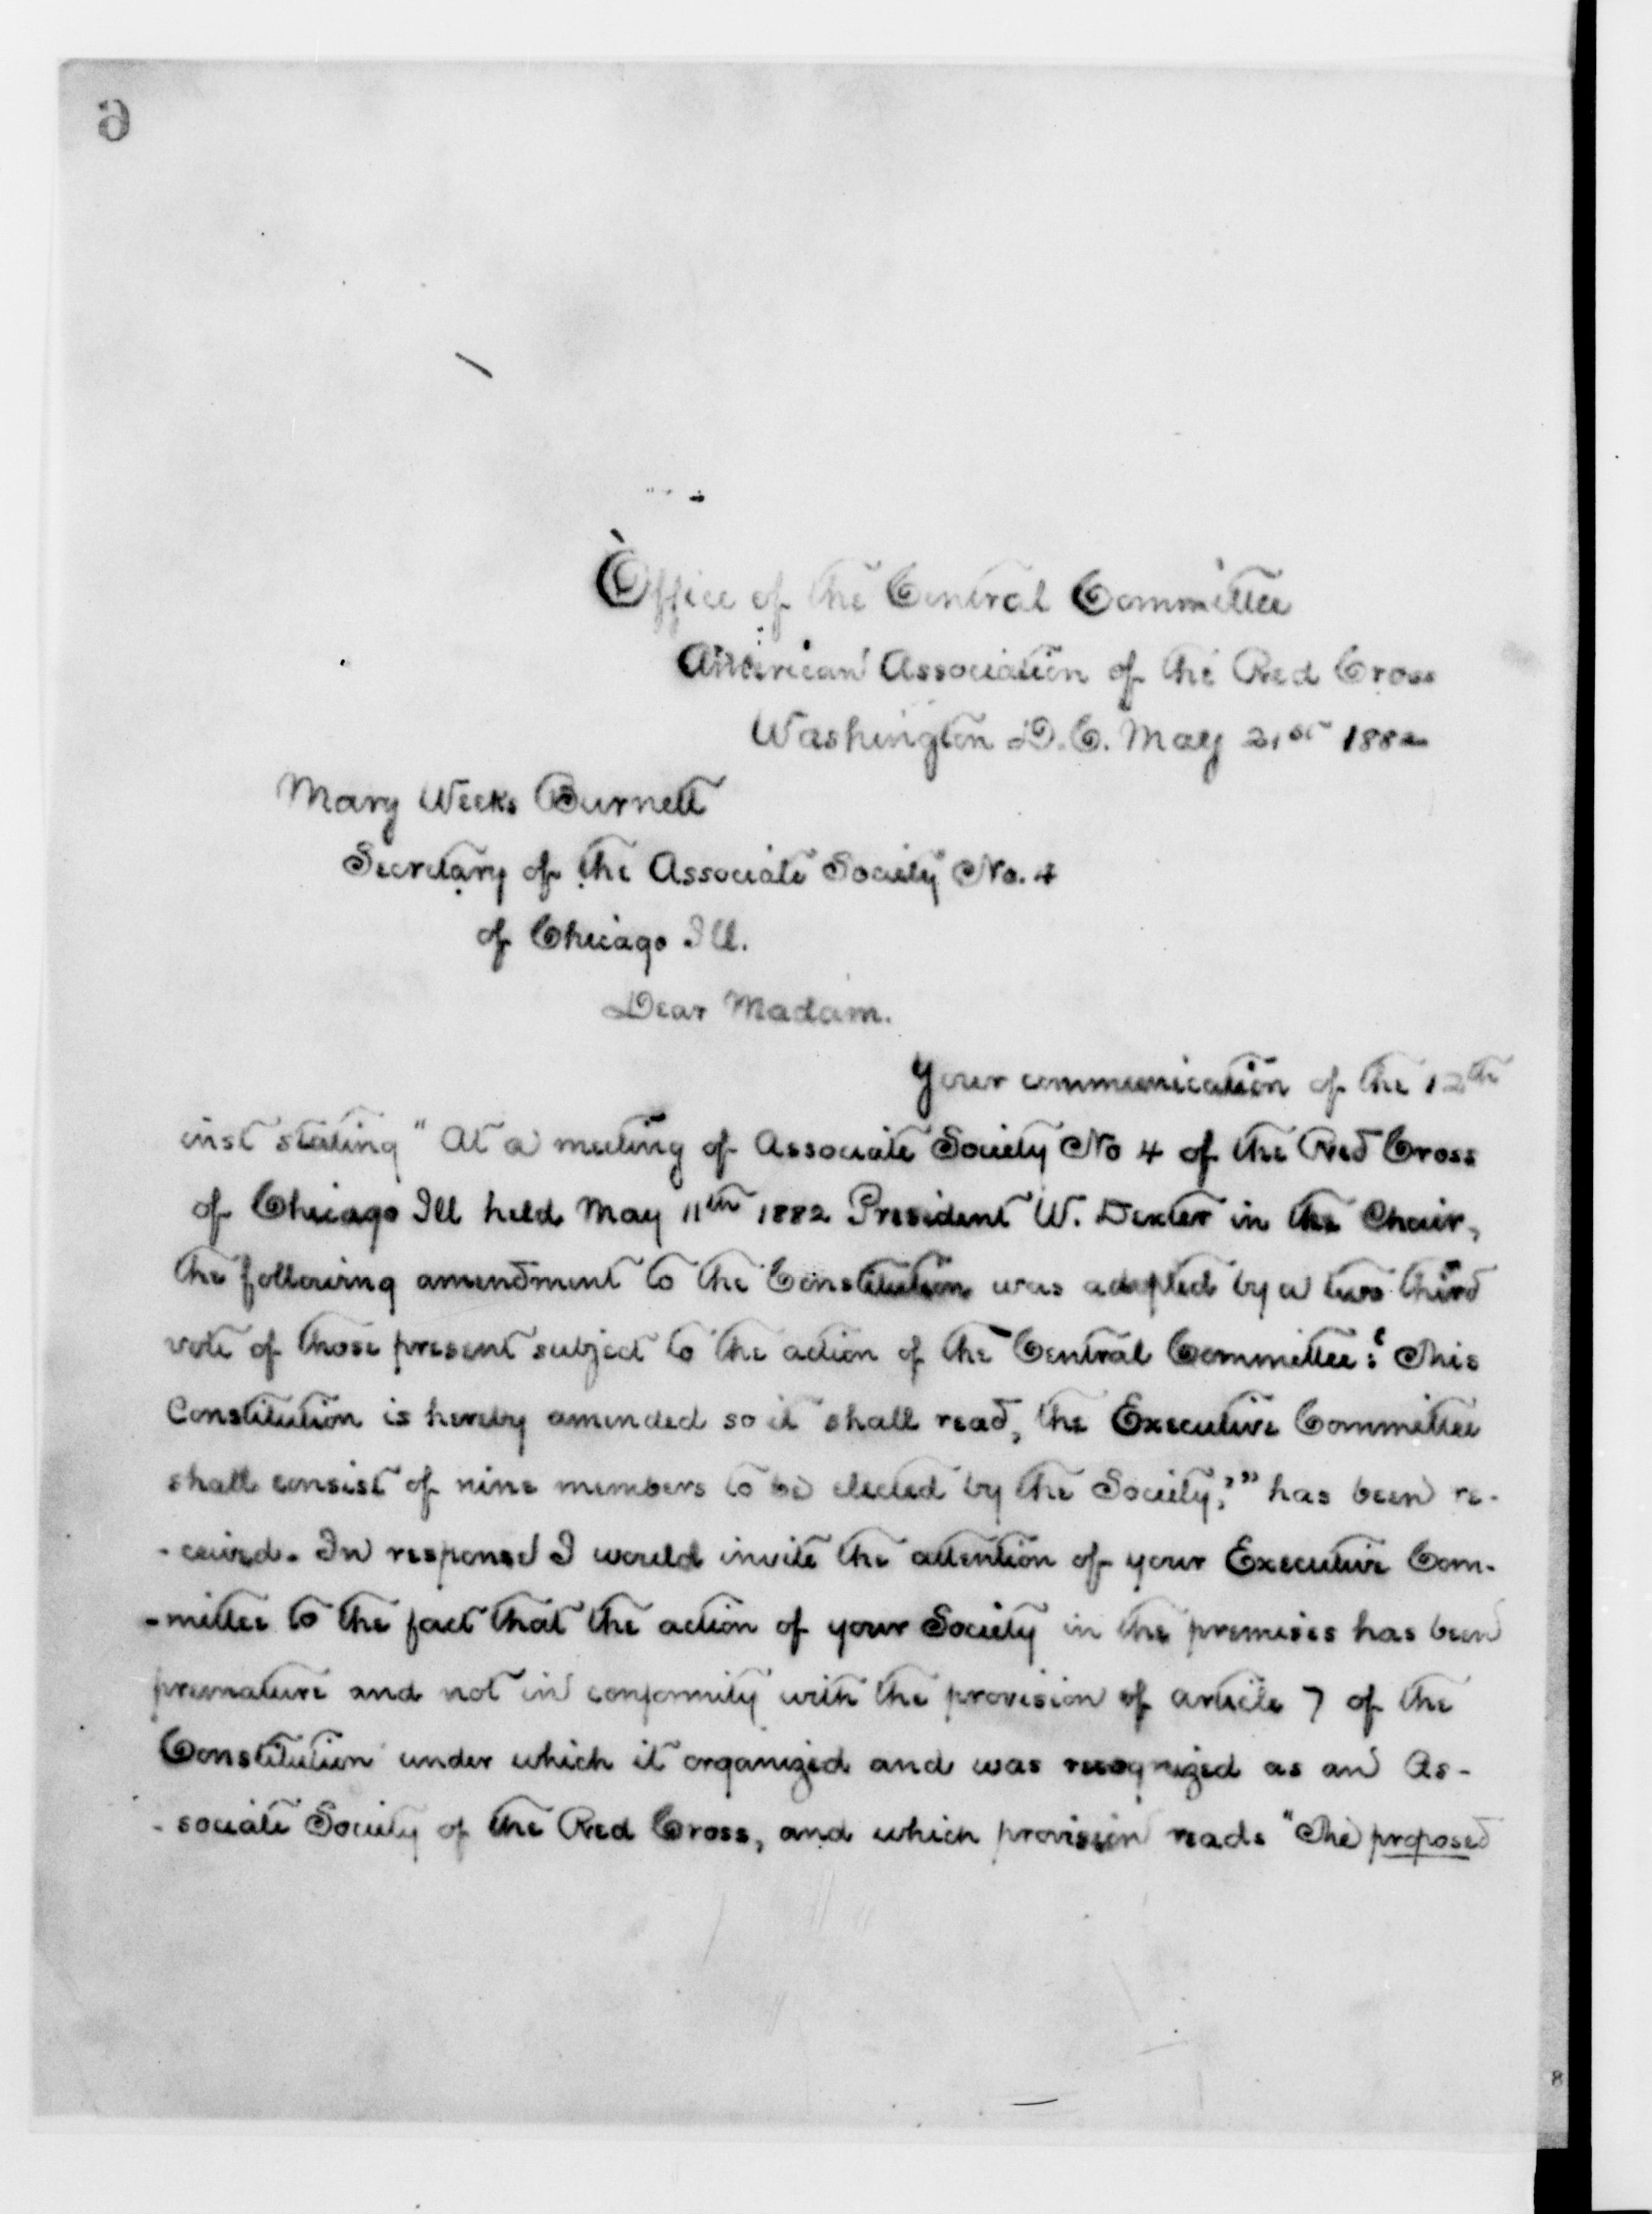 6
Office of the Central Committee
American Association of the Red Cross
Washington D.C. May 21st 1882
Mary Weeks Burnett
Secretary of the Associate Society No. 4
of Chicago Ill.
Dear Madam.
Your communication of the 12th
inst stating "At a meeting of Associate Society No 4 of the Red Cross
of Chicago Ill held May 11th 1882 President W. Dexter in the Chair,
the following amendment to the Constitution was adopted by a two third
vote of those present subject to the action of the Central Committee: 'This
Constitution is hereby amended so it shall read, the Executive Committee
shall consist of nine members to be elected by the Society;'" has been re-
-ceived. In response I would invite the attention of your Executive Com-
-mittee to the fact that the action of your Society in the premises has been
premature and not in conformity with the provision of article 7 of the
Constitution under which it organized and was recognized as an As-
-sociate Society of the Red Cross, and which provision reads "The proposed
8